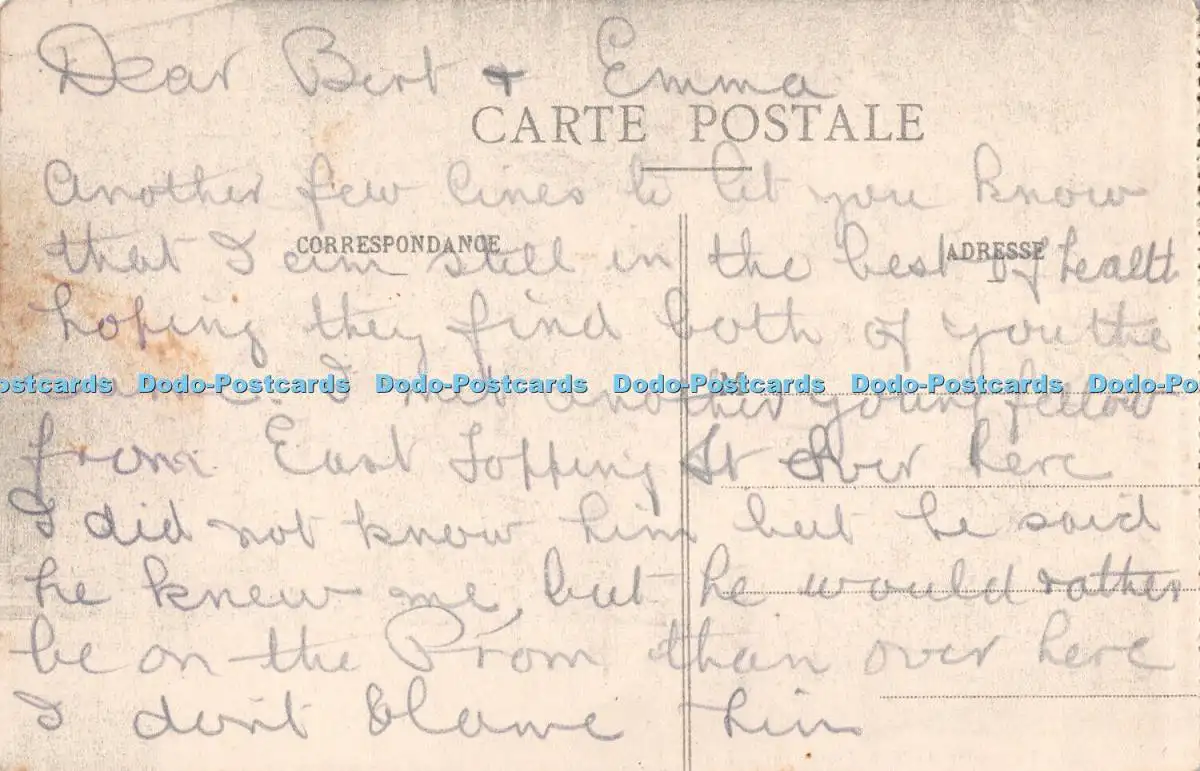 Dear Bert + Emma
CARTE POSTALE
Another few lines to let you know
CORRESPONDANCE
ADRESSE
that I am still in the best of health
hoping they find both of you the
same. I met another young fellow
Dodo-Postcards Dodo-Postcards Dodo-Postcards Dodo-Postcards
from East Topping St over here
I did not know him but he said
he knew me, but he would rather
be on the Prom than over here
I don't blame him